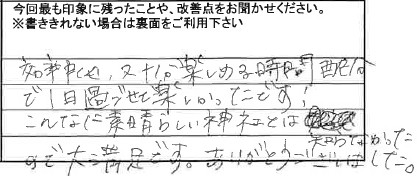 今回最も印象に残ったことや、改善点をお聞かせください。
※書ききれない場合は裏面をご利用下さい
楽しめる時間配分
で1日過ごせて楽しかったです!
こんなに素晴らしい神社とは
知らなかった
ので大満足です。ありがとうございました。